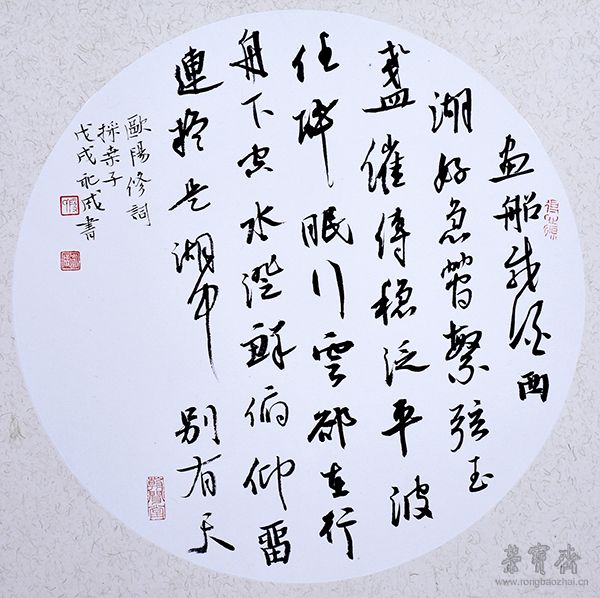 画船載酒西
湖好急管繁弦玉
盞催傳穏泛平波
任醉眠行雲郤在行
舟下空水澄鮮俯仰畱
連疑是湖中别有天
歐陽修詞
採桒子
戊戌永成書
榮寶齋
www.rongbaozhai.cn